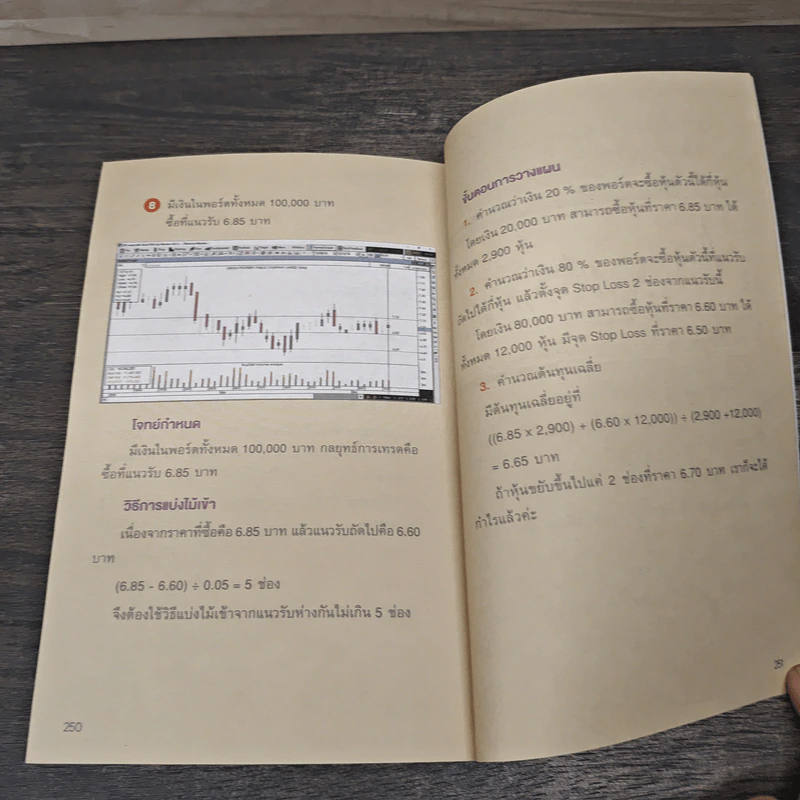 8 มีเงินในพอร์ตทั้งหมด 100,000 บาท
ซื้อที่แนวรับ 6.85 บาท
โจทย์กำหนด
มีเงินในพอร์ตทั้งหมด 100,000 บาท กลยุทธ์การเทรดคือ
ซื้อที่แนวรับ 6.85 บาท
วิธีการแบ่งไม้เข้า
เนื่องจากราคาที่ซื้อคือ 6.85 บาท แล้วแนวรับถัดไปคือ 6.60
บาท
(6.85 - 6.60) ÷ 0.05 = 5 ช่อง
จึงต้องใช้วิธีแบ่งไม้เข้าจากแนวรับห่างกันไม่เกิน 5 ช่อง
250
ขั้นตอนการวางแผน
1. คำนวณว่าเงิน 20 % ของพอร์ตจะซื้อหุ้นตัวนี้ได้กี่หุ้น
โดยเงิน 20,000 บาท สามารถซื้อหุ้นที่ราคา 6.85 บาท ได้
ทั้งหมด 2,900 หุ้น
2. คำนวณว่าเงิน 80 % ของพอร์ตจะซื้อหุ้นตัวนี้ที่แนวรับ
ถัดไปได้กี่หุ้น แล้วตั้งจุด Stop Loss 2 ช่องจากแนวรับนี้
โดยเงิน 80,000 บาท สามารถซื้อหุ้นที่ราคา 6.60 บาท ได้
ทั้งหมด 12,000 หุ้น มีจุด Stop Loss ที่ราคา 6.50 บาท
3. คำนวณต้นทุนเฉลี่ย
มีต้นทุนเฉลี่ยอยู่ที่
((6.85 x 2,900) + (6.60 x 12,000)) ÷ (2,900 +12,000)
= 6.65 บาท
ถ้าหุ้นขยับขึ้นไปแค่ 2 ช่องที่ราคา 6.70 บาท เราก็จะได้
กำไรแล้วค่ะ
251